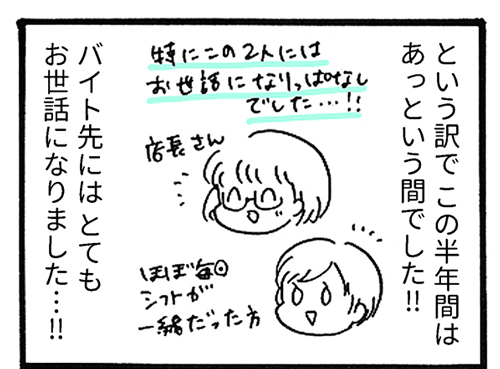 という訳で この半年間は
あっという間でした!!
特にこの2人には
お世話になりっぱなし
でした…!!
店長さん
ほぼ毎日
シフトが
一緒だった方
バイト先には とても
お世話になりました…!!